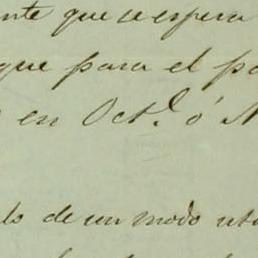 nte que se espera
que para el pa
en Oct.e ó N
do de un modo uti